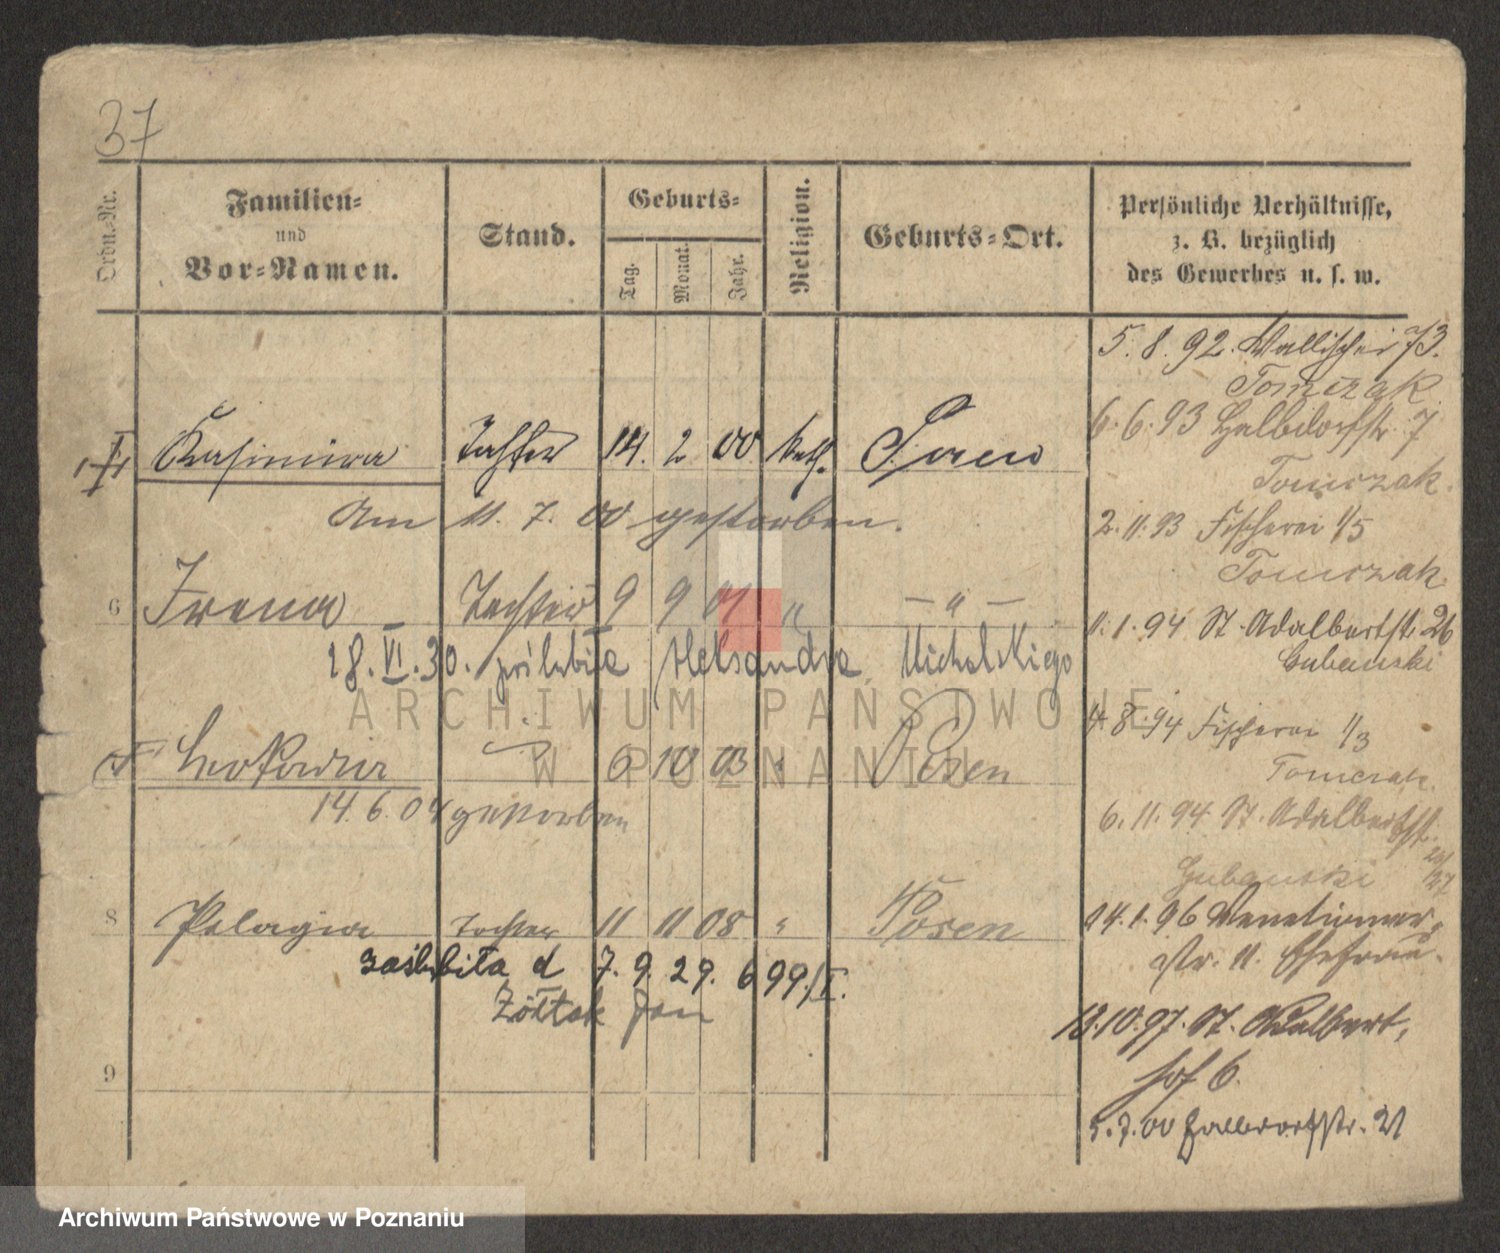 37
Ordn.-Nr.
Familien-
und
Vor-Namen.
Stand.
Geburts-
Tag.
Monat.
Jahr.
Religion.
Geburts-Ort.
Persönliche Verhältnisse,
z. B. bezüglich
des Gewerbes u. s. w.
5. 8. 92. Wallischei 73.
Tomczak
Kasimira Tochter 14. 2 00 kath.
6. 6. 93 Halbdorfstr. 7
Tomczak.
Am 11. 7. 00 gestorben.
2. 11. 93 Fischerei 1/5
Tomczak
6 Irena Tochter 9 9 01 " — " —
11. 1. 94 St. Adalbertstr. 26
Gubanski
28. VI. 30. poślubiła Aleksandra Michalskiego
4. 8. 94 Fischerei 1/3
Tomczak.
† Leokadia 6 10 03 " Posen
14. 6. 04 gestorben
6. 11. 94 St. Adalbertstr.
26/27
Gubanski
8 Pelagia Tochter 11 11 08 " Posen
14. 1. 96 Venetianer-
str. 11. Ehefrau.
zaślubiła d 7. 9. 29. 699/I.
Żółtak Jan
13. 10. 97. St. Adalbert,
hof 6.
9
5. 7. 00 Halbdorfstr. 21
ARCHIWUM PAŃSTWOWE
W POZNANIU
Archiwum Państwowe w Poznaniu